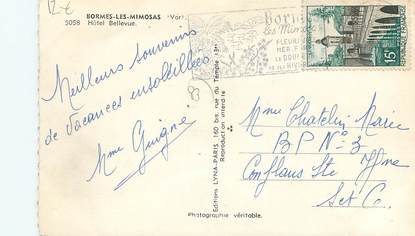 12-€
BORMES-LES-MIMOSAS (Var).
5058 Hôtel Bellevue.
Bormes
les Mimosas
FLEURI
MER F
15F
Meilleurs souvenirs
de vacances ensoleillées
Mme Guigne
83
Editions LYNA-PARIS, 160 bis, rue du Temple - 3e
Reproduction interdite
Mme Chatelin Marie
BP N°3
Conflans Ste Hne
Set O.
Photographie véritable.